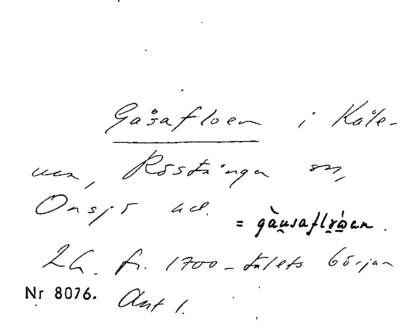 Gåsafloen i Kåle-
Röstånga sn,
Onsjö hd.
= gàu̯saflɤ̯ɷ́an.
Lh. fr. 1700-talets början
Nr 8076. Ant 1.